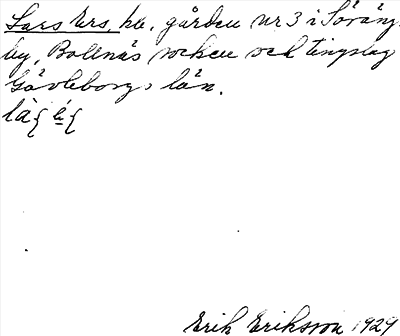 Lars Ers, hu. gården nr 3 i Söräng
by, Bollnäs socken och tingslag
Gävleborgs län.
Erik Eriksson 1929